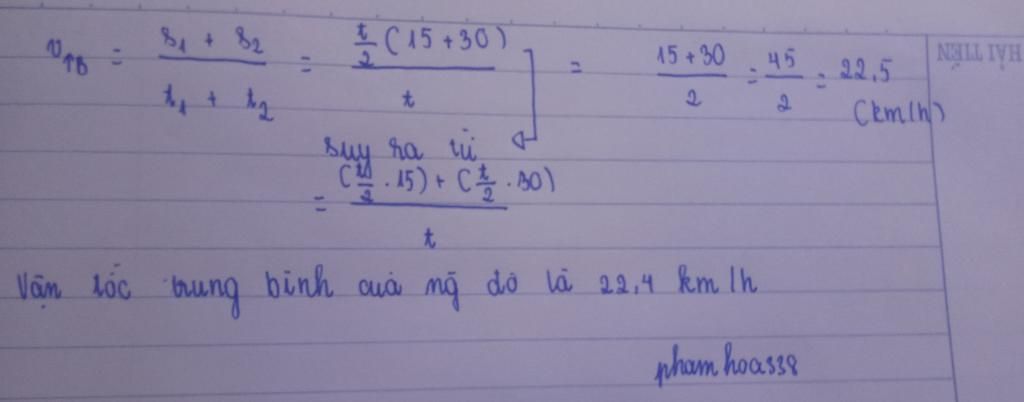 v_TB = (s₁ + s₂)/(t₁ + t₂) = (t/2 (15+30))/t = (15+30)/2 = 45/2 = 22,5
(km/h)
HẢI TIẾN
suy ra từ
= ((t/2 . 15) + (t/2 . 30))/t
Vận tốc trung bình của ng̃ đó là 22,4 km/h
phamhoa338